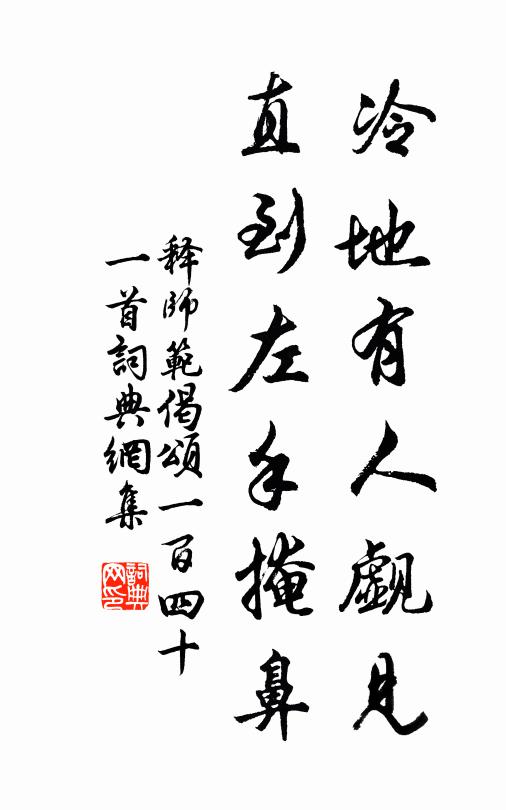 冷地有人觑見
直到左手掩鼻
释師範偈頌一百四十
一首詞典網集
詞典网印